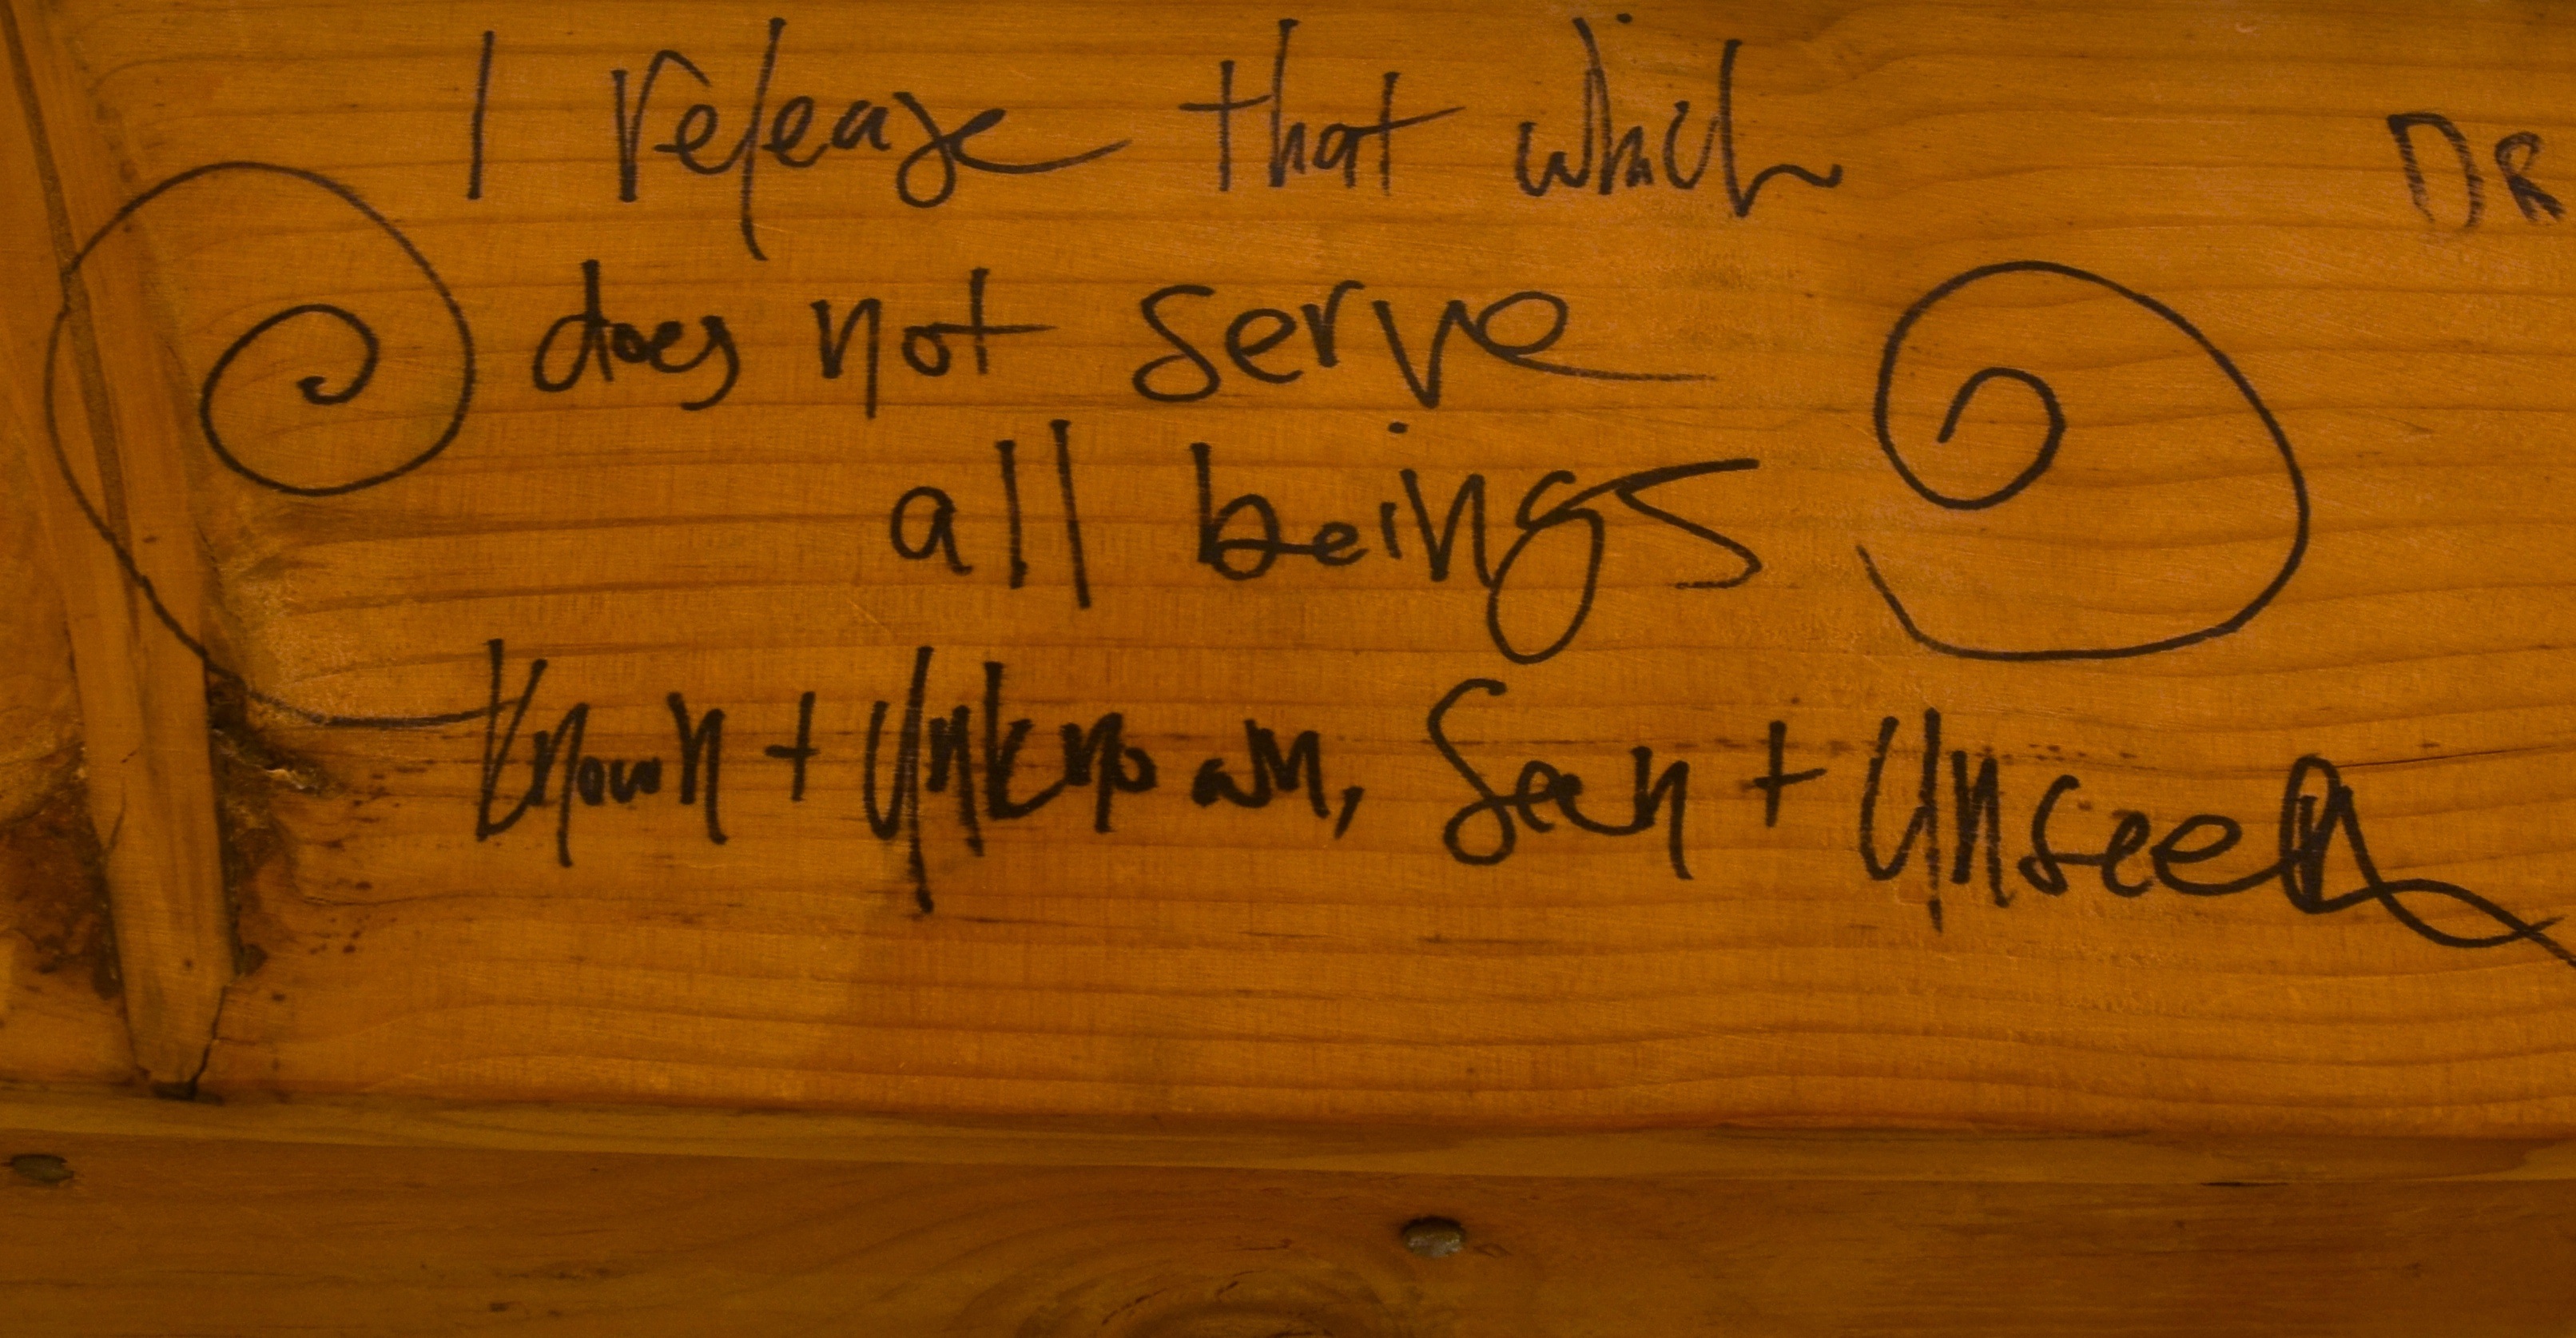 I release that which
DR
does not serve
all beings
Known + Unknown, Seen + Unseen